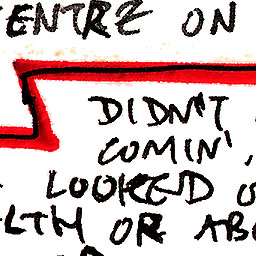 ENTRE ON
DIDN'T
COMIN',
LOOKED
LTH OR AB